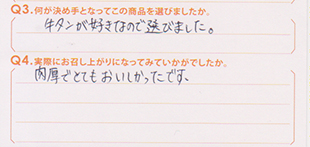 Q3.何が決め手となってこの商品を選びましたか。
牛タンが好きなので選びました。
Q4.実際にお召し上がりになってみていかがでしたか。
肉厚でとてもおいしかったです。